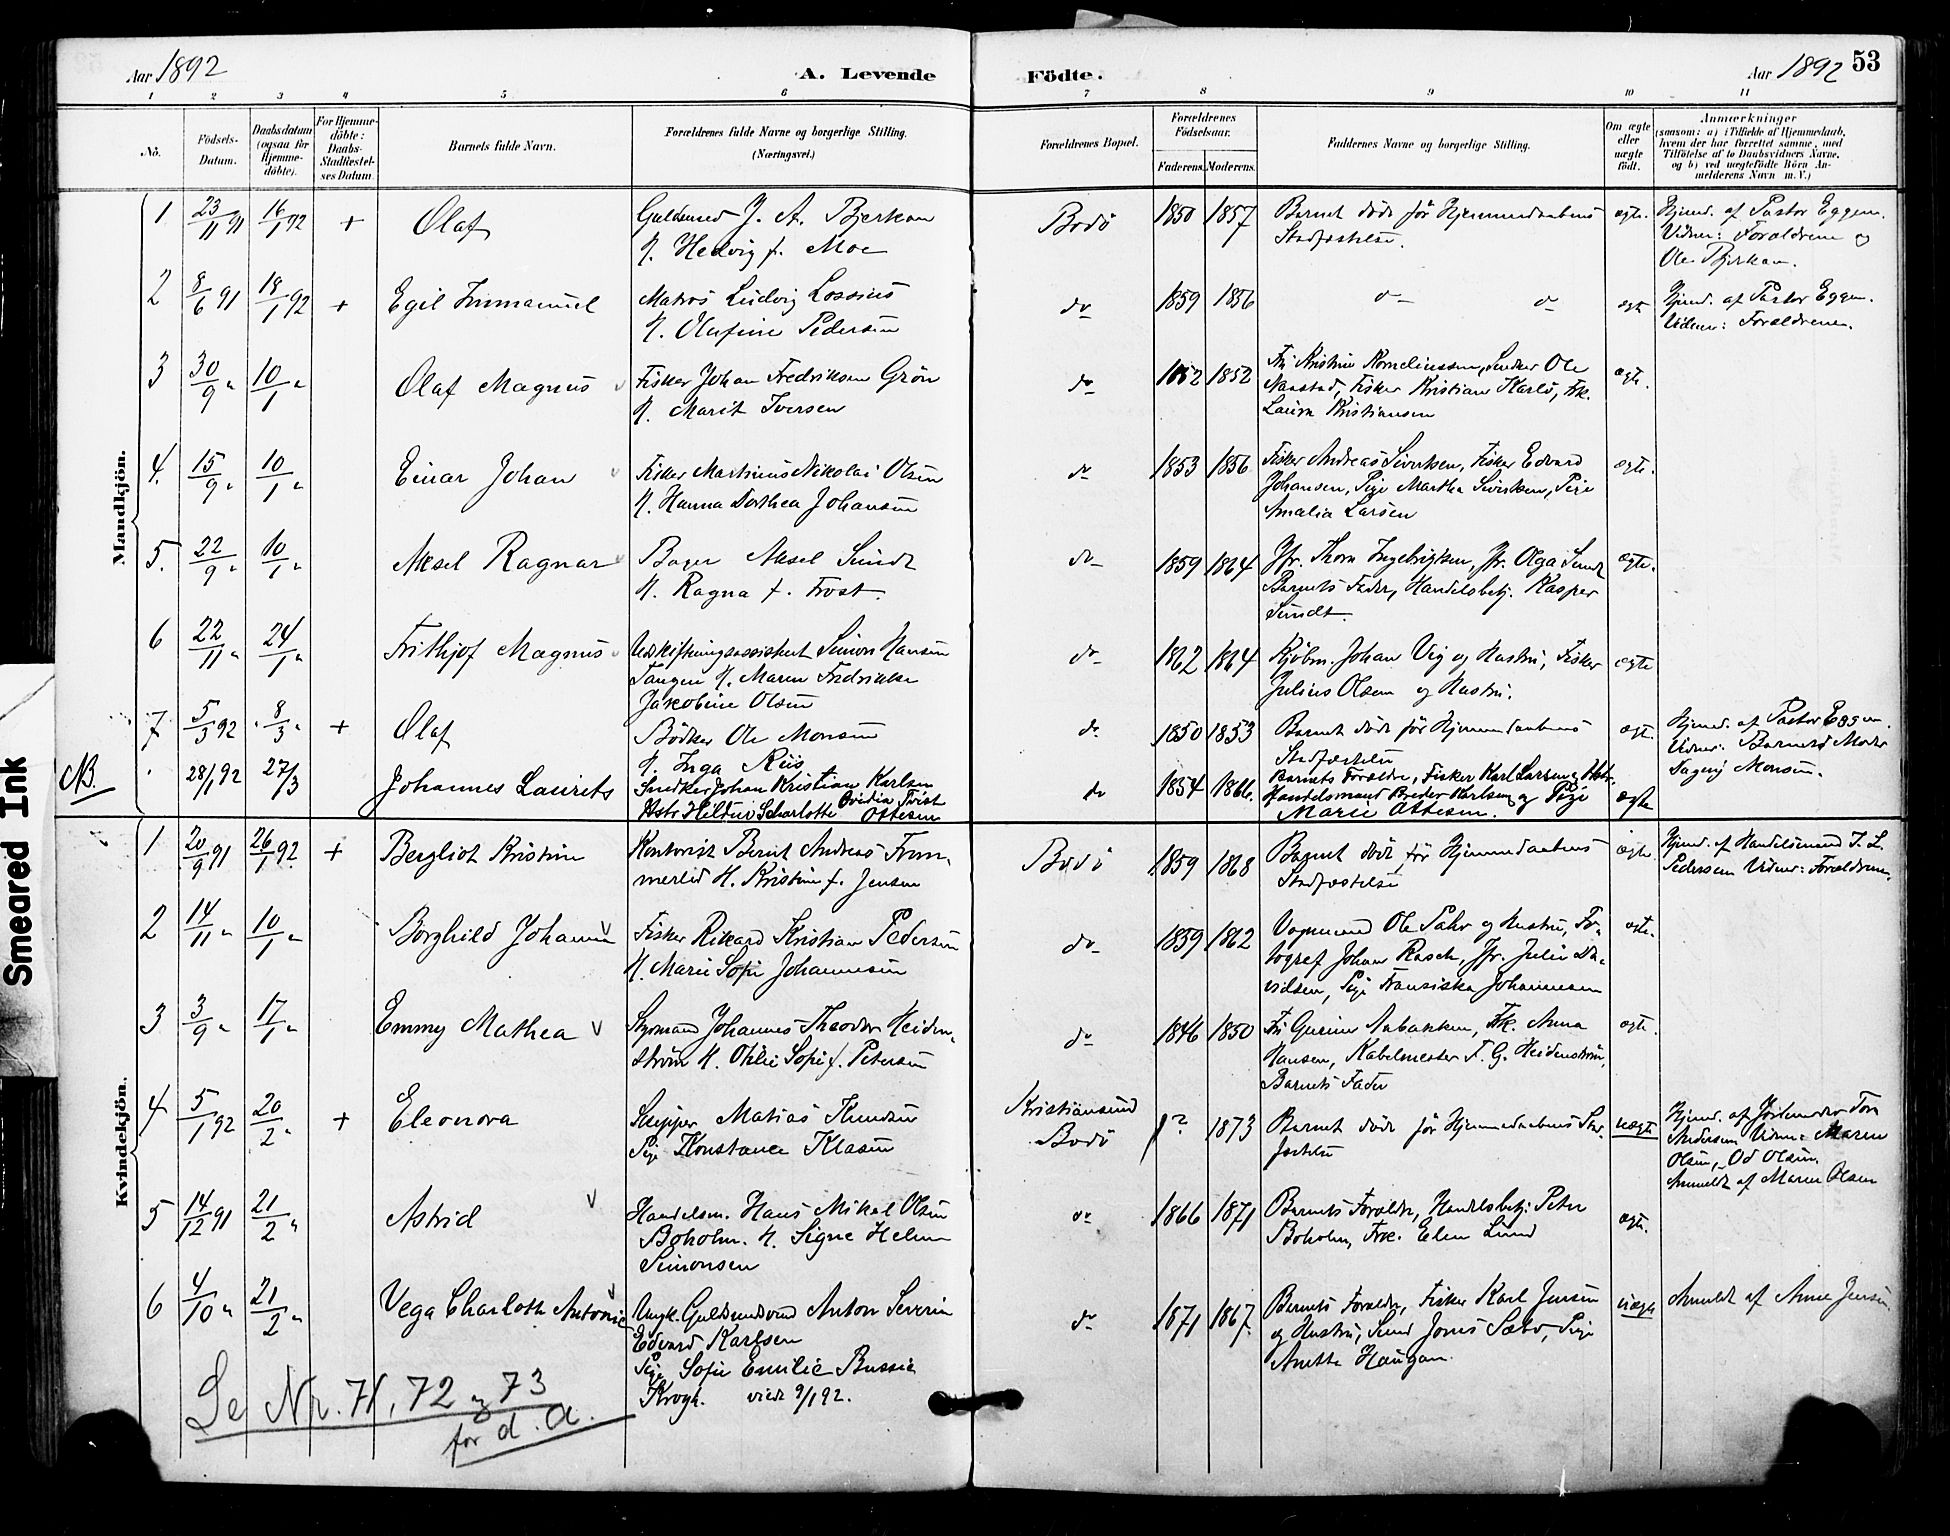 Aar 1892
A. Levende Födte.
Aar 1892
53
1 2 3 4 5 6 7 8 9 10 11
No.
Födsels-Datum.
Daabsdatum (ogsaa for Hjemme-döbte).
For Hjemme-döbte: Daabs-Stadfæstel-ses Datum.
Barnets fulde Navn.
Forældrenes fulde Navne og borgerlige Stilling. (Næringsvei.)
Forældrenes Bopæl.
Forældrenes Födselsaar.
Faderens.
Moderens.
Faddernes Navne og borgerlige Stilling.
Om ægte eller uægte födt.
Anmærkninger (saasom: a) i Tilfælde af Hjemmedaab, hvem der har forrettet samme, med Tilföielse af to Daabsvidners Navne, og b) ved uægtefödte Börn An-melderens Navn m. V.)
Mandkjön.
1 23/11 91 16/1 92 + Olaf
Guldsmed J. A. Bjerkan
H. Hedvig f. Moe
Bodö 1850 1857
Barnet döde för Hjemmedaabens
Stadfæstelse.
ægte.
Hjmd. af Pastor Eggen.
Vidner: Forældrene og
Ole Bjerkan.
2 8/6 91 18/1 92 + Egil Immanuel
Matros Ludvig Lossius
H. Olufine Pedersen
do 1859 1856
ægte
Hjmd. af Pastor Eggen.
Vidner: Forældrene.
3 30/9 " 10/1 " Olaf Magnus
Fisker Johan Fredriksen Grön
H. Marit Iversen
do 1852 1852
Fru Kristine Korneliussen, Snedker Ole
Naastad, Fisker Kristian Karlö, Frk.
Laura Kristiansen
ægte.
4. 15/9 " 10/1 " Einar Johan
Fisker Martinus Nikolai Olsen
H. Hanna Dorthea Johansen
do 1853 1856
Fisker Andreas Sivertsen, Fisker Edvard
Johansen, Pige Martha Sivertsen, Pige
Amalia Larsen
ægte.
5. 22/9 " 10/1 " Aksel Ragnar
Bager Aksel Sundt
H. Ragna f. Frost.
do 1859 1864
Jfr. Thora Ingebrigtsen, Jfr. Olga Sundt
Barnets Fader, Handelsbetj. Kasper
Sundt.
ægte.
6 22/11 " 24/1 " Frithjof Magnus
Udskiftningsassistent Simon Hansen
Tangen H. Maren Fredrikke
Jakobine Olsen
do 1862 1864
Kjöbm. Johan Vig og Hustru, Fisker
Julius Olsen og Hustru.
ægte
7 5/3 92 8/3 " + Olaf
Bödker Ole Monsen
H. Inga Riis
do 1850 1853
Barnet döde för Hjemmedaabens
Stadfæstelse
ægte.
Hjmd. af Pastor Eggen.
Vidner: Barnets Moder
Dagny Monsen.
NB. 28/1 92 27/3 Johannes Laurits
Snedker Johan Kristian Karlsen
Hstr. Hilduve Scharlotte Ovidia Tvist Ottesen
do 1854 1866.
Barnets Forældre, Fisker Karl Larsen og Hstr.
Handelsmand Breder Karlsen og Pige
Marie Ottesen.
ægte
Kvindekjön.
1 20/9 91 26/1 92 + Bergliot Kristine
Kontorist Bernt Andreas Trom-
merlid H. Kristine f. Jensen
Bodö 1859 1868
Barnet döde för Hjemmedaabens
Stadfæstelse
ægte.
Hjmd. af Handelsmand J. L.
Pederssen Vidner: Forældrene.
2 14/11 " 10/1 " Borghild Johanne
Fisker Rikard Kristian Pedersen
H. Marie Sofie Johannesen
do 1859 1862
Vognmand Ole Sahr og Hustru, Fo-
tograf Johan Rasch, Jfr. Julie Da-
vidsen, Pige Fransiska Johannesen
ægte.
3 3/9 " 17/1 " Emmy Mathea
Styrmand Johannes Theodor Heiden-
ström H. Othlie Sofie f. Petersen
do 1846 1850
Fru Gurine Aabakken, Frk. Anna
Hansen, Kabelmester F. G. Heidenström,
Barnets Fader
ægte.
4 5/1 92 20/2 " + Eleonora
Skipper Matias Knudsen
Pige Konstance Klasen
Kristiansund
Bodö ? 1873
Barnet döde för Hjemmedaabens Stad-
fæstelse
uægte
Hjmd. af Jordemoder Tora
Andersen Vidner: Maren
Olsen, Od Olsen.
Anmeldt af Maren Olsen
5 14/12 91 21/2 " Astrid
Handelsm. Hans Mikal Olsen
Boholm. H. Signe Helene
Simonsen
do 1866 1871
Barnets Forældre, Handelsbetj. Peter
Boholm, Frk. Elen Lund
ægte.
6 4/10 " 21/2 " Vega Charlotte Antonie
Ungk. Guldsmedsvend Anton Severin
Edvard Karlsen
Pige Sofie Emilie Bussie
Krogh. viede 9/1 92.
do 1871 1867.
Barnets Forældre, Fisker Karl Jensen
og Hustru, Smed Jonas Sæbö, Pige
Anetta Haugan.
uægte
Anmeldt af Anne Jensen
Se Nr. 71, 72 og 73
for d. a.
Smeared Ink